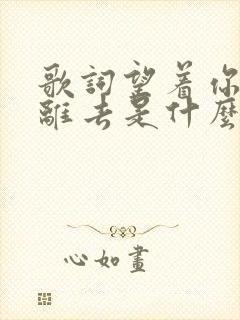 歌詞望着你
離去是什麼
心如畫